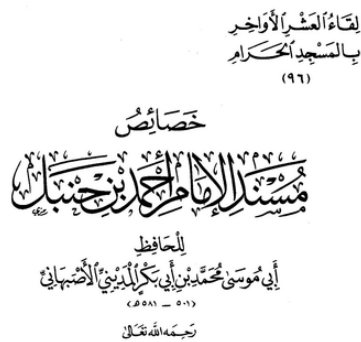 لِقَاءُ العَشْرِ الأَوَاخِرِ
بِالمَسْجِدِ الحَرَامِ
(٩٦)
خَصَائِصُ
مُسْنَدِ الإِمَامِ أَحْمَدَ بْنِ حَنْبَل
لِلْحَافِظِ
أَبِي مُوسَى مُحَمَّدِ بْنِ أَبِي بَكْرٍ المَدِينِيِّ الأَصْبَهَانِيِّ
(٥٠١ - ٥٨١هـ)
رَحِمَهُ اللَّهُ تَعَالَى